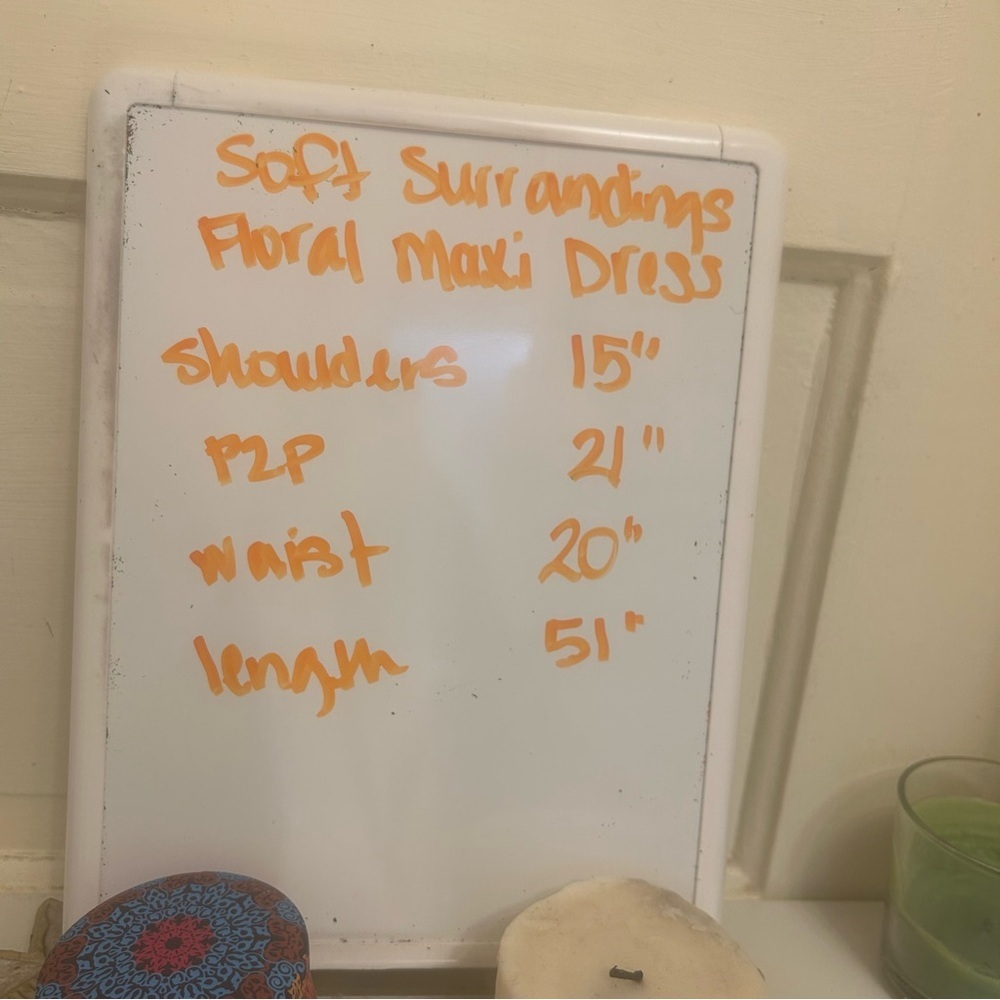 Soft Surrandings
Floral Maxi Dress
Shoulders 15"
P2P 21"
waist 20"
length 51"